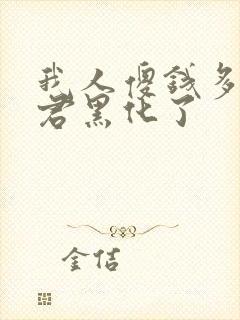 我人傻钱多
君黑化了
金佶